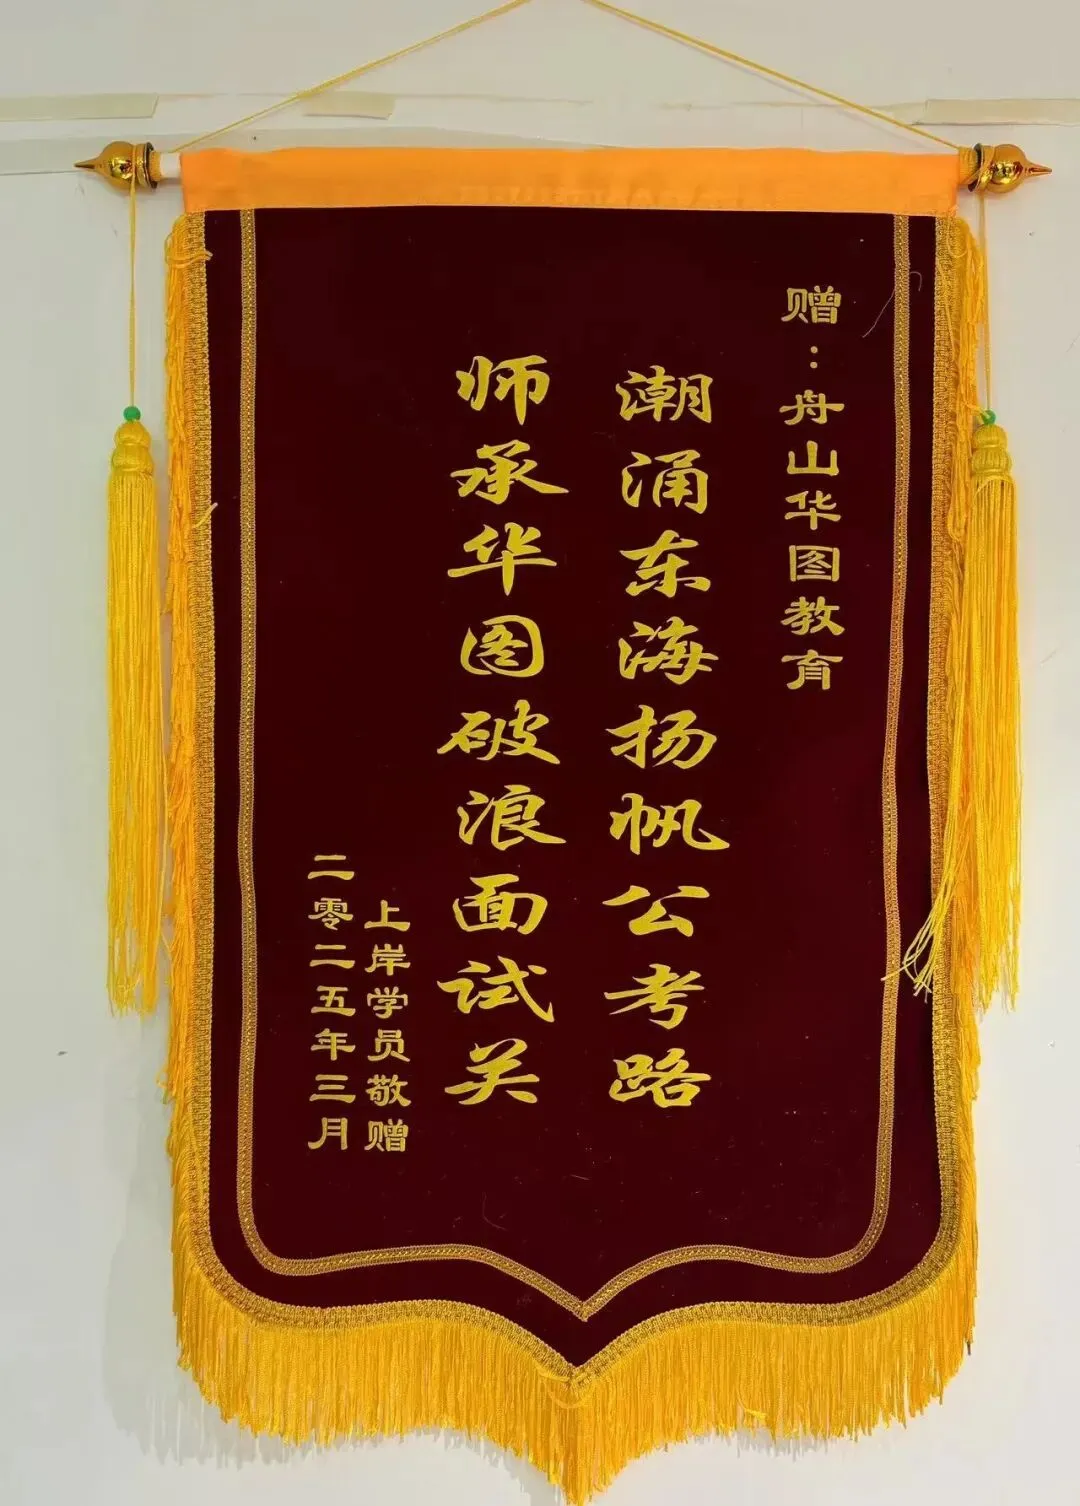 赠：舟山华图教育
潮涌东海扬帆公考路
师承华图破浪面试关
上岸学员敬赠
二零二五年三月